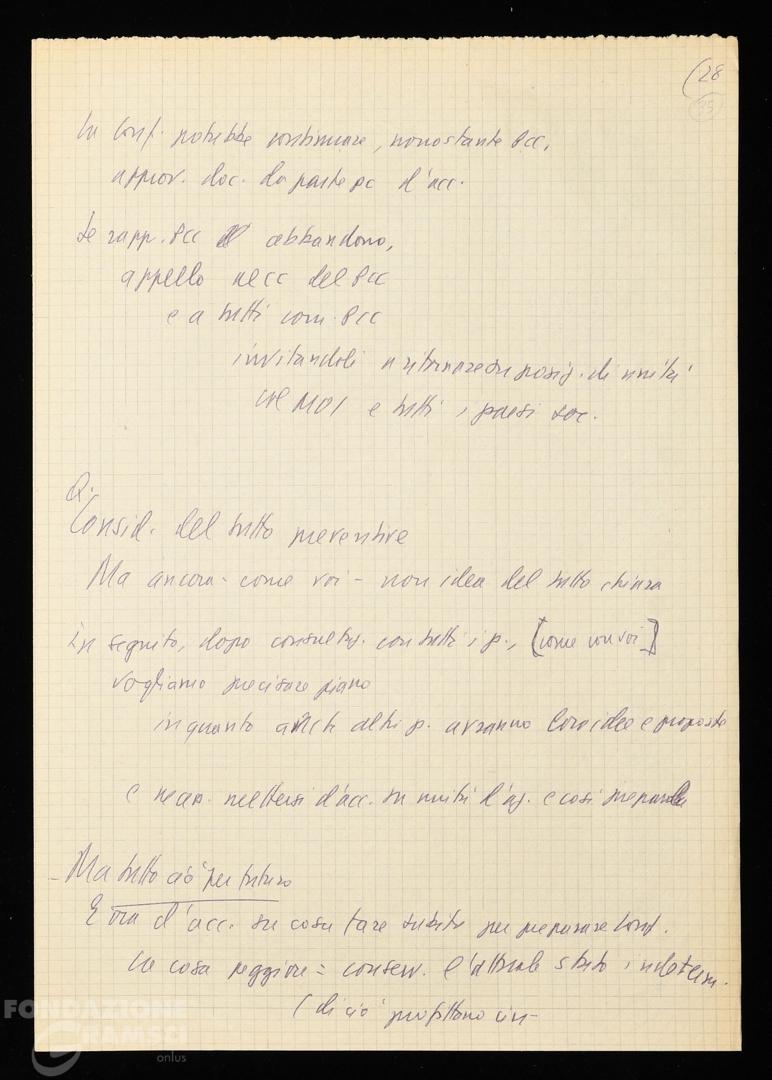 (28
25
La Conf. potrebbe continuare, nonostante PCC,
approv. doc. da parte pc d'acc.
Se rapp. PCC abbandono,
appello ne CC del PCC
e a tutti com. PCC
invitandoli a ritornare su posiz. di unità
col MOI e tutti i paesi soc.
Q.
Consid. del tutto preventive
Ma ancora - come voi - non idea del tutto chiara
In seguito, dopo consultaz. con tutti i p., [come con voi]
vogliamo precisare piano
in quanto anche altri p. avranno loro idee e proposte
e necess. mettersi d'acc. su unità d'az. e così prepararla
- Ma tutto ciò per futuro
E ora d'acc. su cosa fare subito per preparare Conf.
La cosa peggiore = conserv. l'attuale stato indeterm.
(di ciò profittano cin-
FONDAZIONE
GRAMSCI
onlus